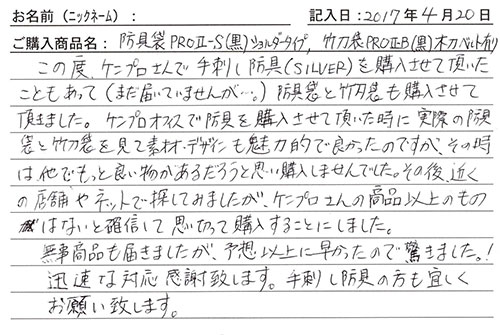 お名前(ニックネーム) :　　　　　記入日:2017年4月20日
ご購入商品名: 防具袋PROⅡ-S(黒)ショルダータイプ, 竹刀袋PROⅡB(黒)木刀ベルト有り
この度、ケンプロさんで手刺し防具(SILVER)を購入させて頂いた
こともあって(まだ届いていませんが…。)防具袋と竹刀袋も購入させて
頂きました。ケンプロオフィスで防具を購入させて頂いた時に実際の防具
袋と竹刀袋を見て素材・デザインも魅力的で良かったのですが、その時
は他でもっと良い物があるだろうと思い購入しませんでした。その後、近く
の店舗やネットで探してみましたが、ケンプロさんの商品以上のもの
はないと確信して思い切って購入することにしました。
無事商品も届きましたが、予想以上に早かったので驚きました。!
迅速な対応感謝致します。手刺し防具の方も宜しく
お願い致します。